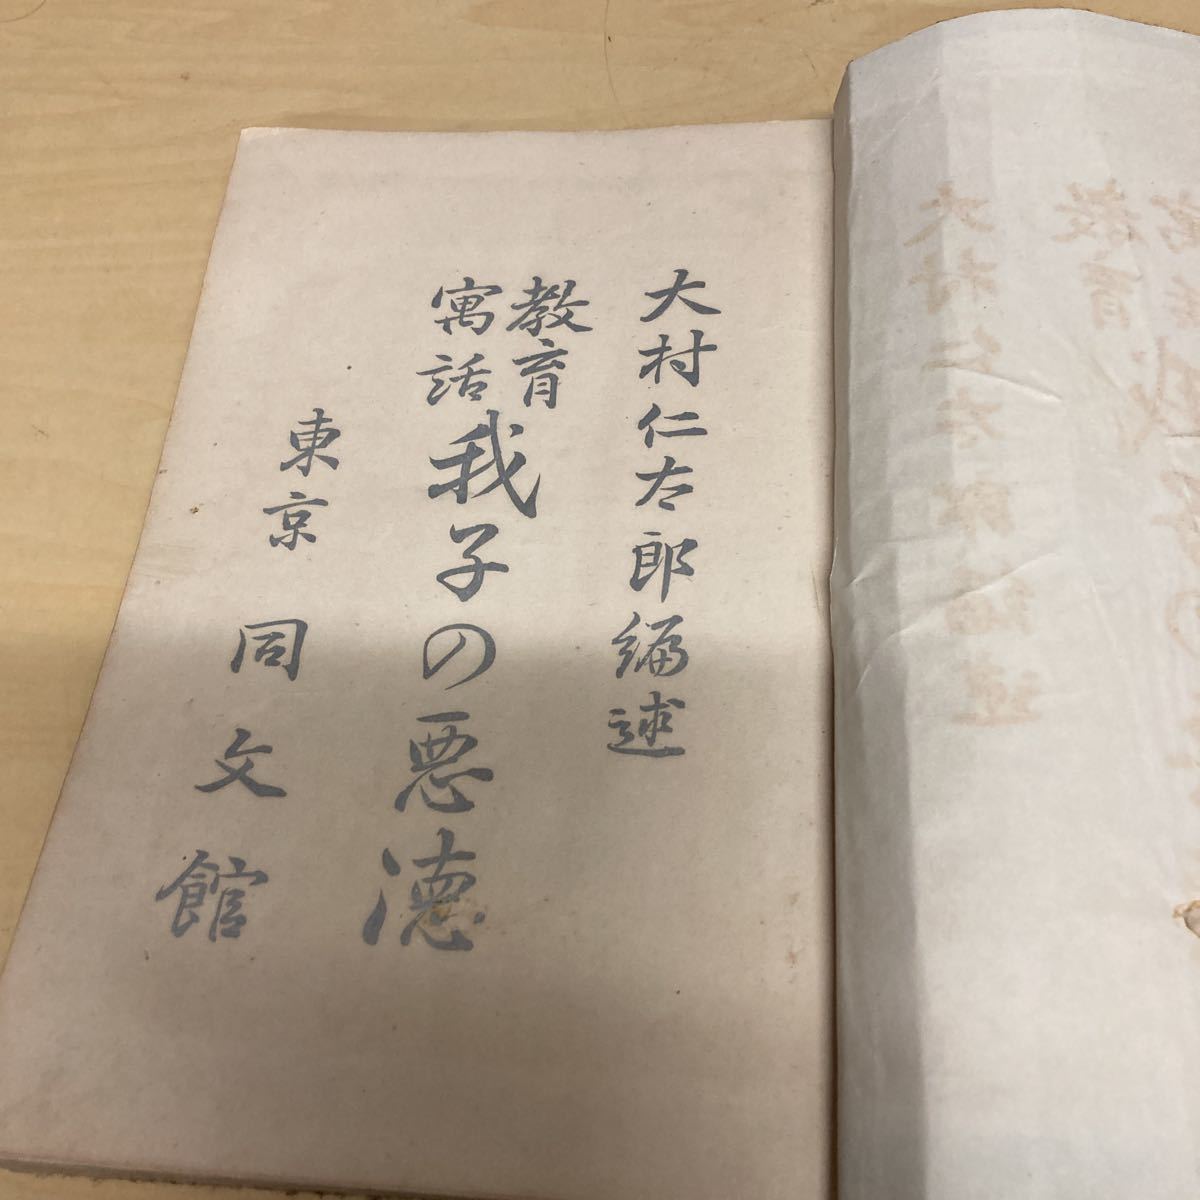 大村仁太郎編述
教育
寓話
我子の悪徳
東京 同文館